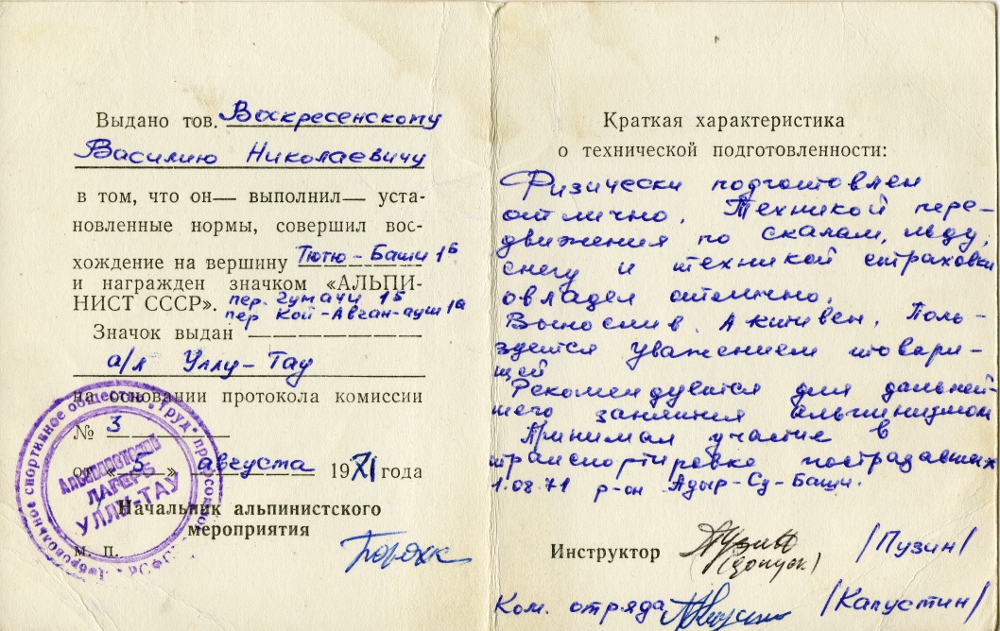 Выдано тов. Воскресенскому
Василию Николаевичу
в том, что он— выполнил— уста-
новленные нормы, совершил вос-
хождение на вершину Тютю-Баши 1Б
и награжден значком «АЛЬПИ-
НИСТ СССР». пер. Гумачи 1Б
пер Кой-Авган-ауш 1а
Значок выдан
а/л Уллу-Тау
на основании протокола комиссии
№ 3
от «5» августа 1971 года
Начальник альпинистского
мероприятия
м. п.
Добровольное спортивное общество „Труд"
РСФСР
Альпинистский
ЛАГЕРЬ
УЛЛУ-ТАУ
Краткая характеристика
о технической подготовленности:
Физически подготовлен
отлично. Техникой пере-
движения по скалам, льду,
снегу и техникой страховки
овладел отлично.
Вынослив. Активен. Поль-
зуется уважением товари-
щей
Рекомендуется для дальней-
шего занятия альпинизмом
Принимал участие в
транспортировке пострадавших
1.08.71 р-он Адыр-Су-Баши.
Инструктор /Пузин/
(допуск)
Ком. отряда /Капустин/